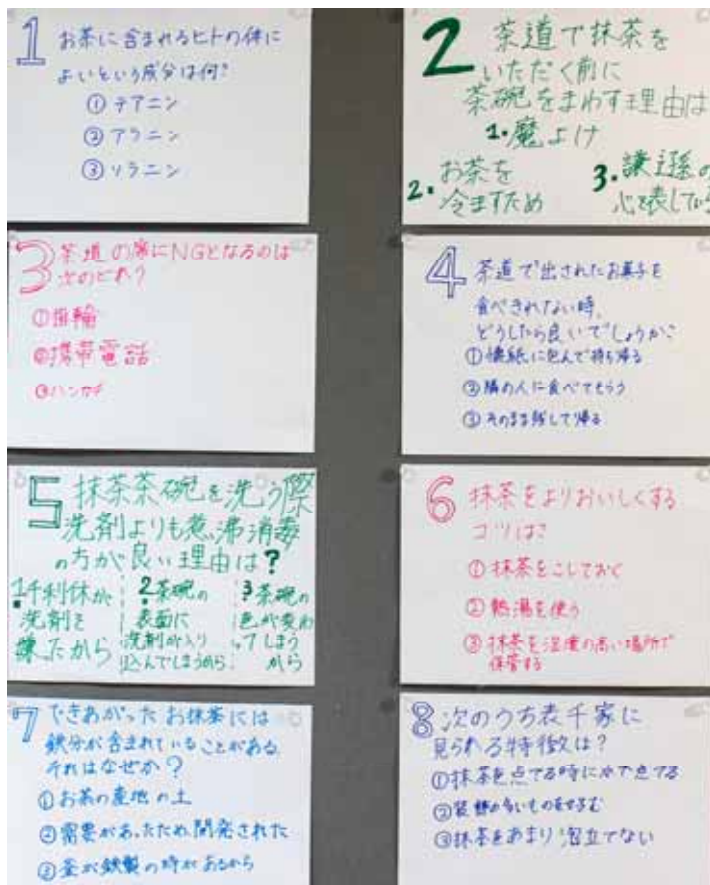 1 お茶に含まれるヒトの体に
よいという成分は何?
① テアニン
② アラニン
③ ソラニン
2 茶道で抹茶を
いただく前に
茶碗をまわす理由は
1. 魔よけ
2. お茶を
冷ますため
3. 謙遜の
心を表している
3 茶道の席にNGとなるのは
次のどれ?
①指輪
②携帯電話
③ハンカチ
4 茶道で出されたお菓子を
食べきれない時、
どうしたら良いでしょうか?
①懐紙に包んで持ち帰る
②隣の人に食べてもらう
③そのまま残して帰る
5 抹茶茶碗を洗う際
洗剤よりも煮沸消毒
の方が良い理由は?
1千利休が
洗剤を
嫌ったから
2茶碗の
表面に
洗剤が入り
込んでしまうから
3茶碗の
色が変わ
ってしまう
から
6 抹茶をよりおいしくする
コツは?
①抹茶をこしておく
②熱湯を使う
③抹茶を湿度の高い場所で
保管する
7 できあがったお抹茶には
鉄分が含まれていることがある
それはなぜか?
①お茶の産地の土
②需要があったため開発された
③釜が鉄製の時があるから
8 次のうち表千家に
見られる特徴は?
①抹茶を点てる時に水で点てる
②装飾が多いものを好む
③抹茶をあまり泡立てない